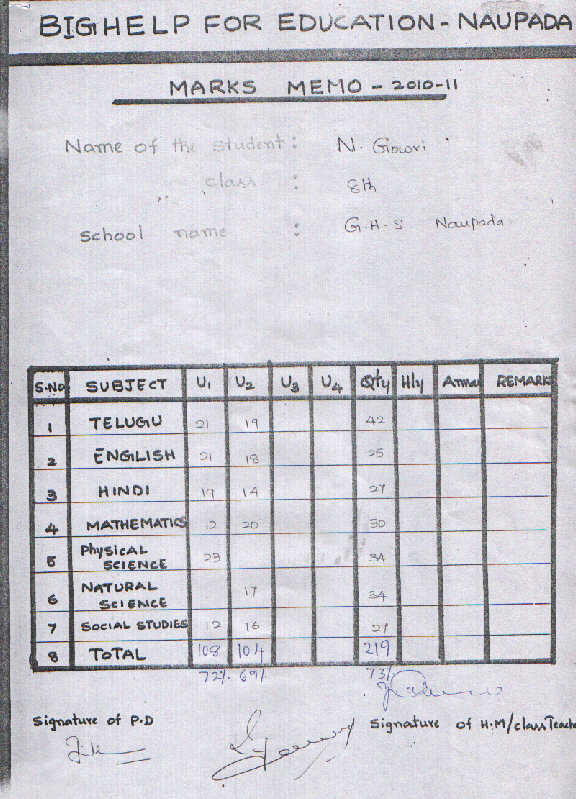 BIGHELP FOR EDUCATION - NAUPADA
MARKS MEMO - 2010-11
Name of the student : N. Gowri
class : 8th
school name : G.H.S Naupada
S.No SUBJECT U1 U2 U3 U4 Qtly Hly Annu REMARK
1 TELUGU 21 19 42
2 ENGILISH 21 18 25
3 HINDI 17 14 27
4 MATHEMATICS 12 20 30
5 PhysicAL SCIENCE 23 34
6 NATURAL SCIENCE 17 34
7 SOCIAL STUDIES 12 16 27
8 TOTAL 108 104 219
72% 69% 73%
Signature of P.D Signature of H.M/class Teache